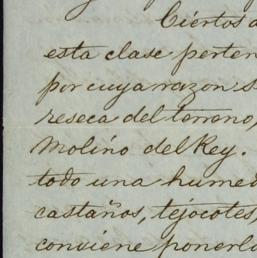 Ciertos a
esta clase perten
por cuya razon s
reseca del terreno,
Molino del Rey.
todo una humed
castaños, tejocotes,
conviene ponerlo